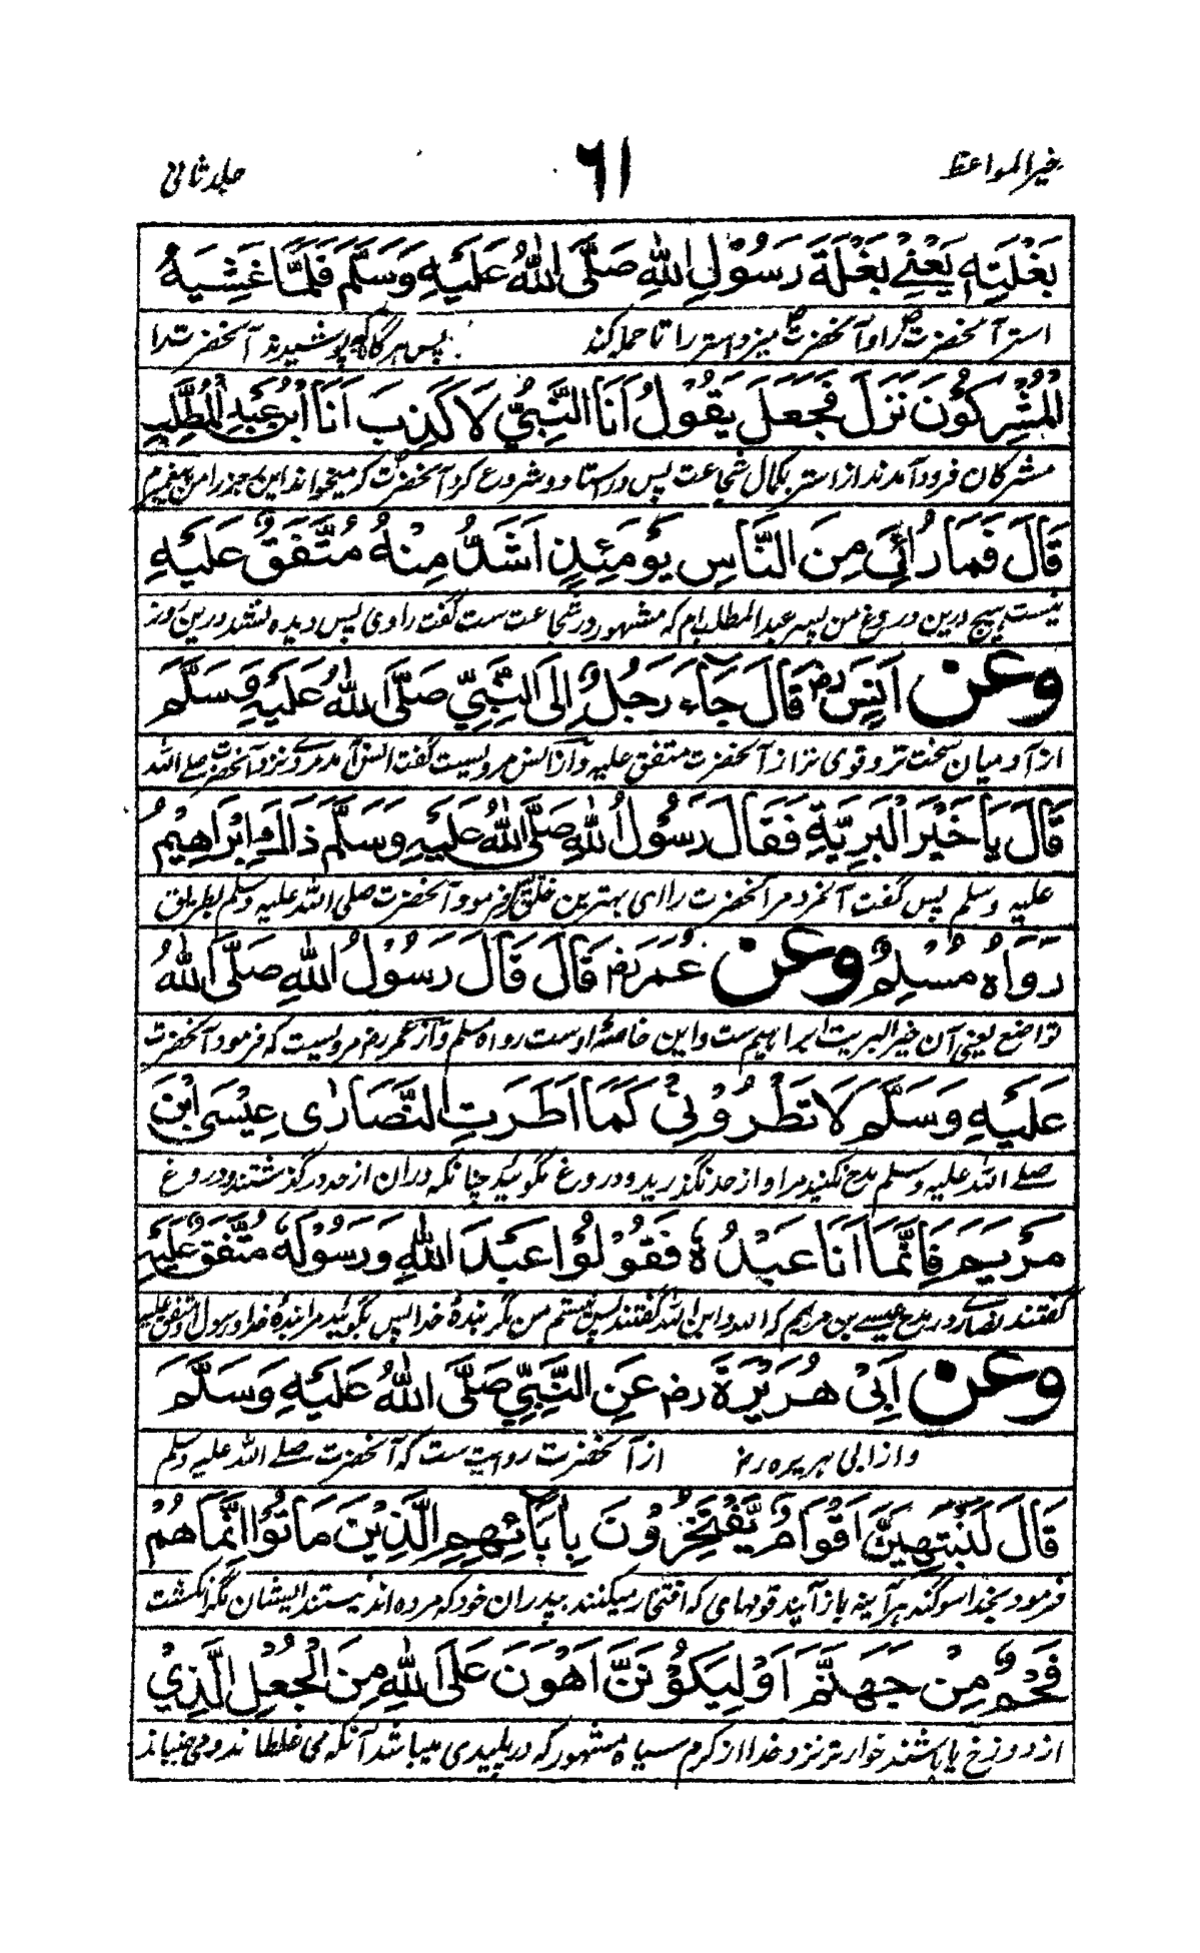 خیر المواعظ ۶۱ جلد ثانی
بَغْلَتِهٖ يَعْنِيْ بَغْلَةَ رَسُوْلِ اللّٰهِ صَلَّى اللّٰهُ عَلَيْهِ وَسَلَّمَ فَلَمَّا غَشِيَهُ
استر آنحضرتؐ را و آنحضرتؐ میزد استر را تا حمله کند پس هرگاه که پوشیدند آنحضرت را
الْمُشْرِكُوْنَ نَزَلَ فَجَعَلَ يَقُوْلُ اَنَا النَّبِيُّ لَا كَذِبَ اَنَا ابْنُ عَبْدِ الْمُطَّلِبِ
مشرکان فرود آمدند از استر بکمال شجاعت پس در استاد و شروع کرد آنحضرتؐ که میخواند این رجز را من پیغمبرم
قَالَ فَمَا رُائِيَ مِنَ النَّاسِ يَوْمَئِذٍ اَشَدُّ مِنْهُ مُتَّفَقٌ عَلَيْهِ
نیست هیچ درین دروغ من پسر عبدالمطلب ام که مشهور در شجاعت ست گفت راوی پس دیده نشد درین روز
وعن اَنَسٍ رض قَالَ جَاءَ رَجُلٌ اِلَى النَّبِيِّ صَلَّى اللّٰهُ عَلَيْهِ وَسَلَّمَ
از آدمیان سخت تر و قوی تر از آنحضرت متفق علیه و از انس مرویست گفت انس آمد مردے نزد آنحضرت صلے الله
قَالَ يَا خَيْرَ الْبَرِيَّةِ فَقَالَ رَسُوْلُ اللّٰهِ صَلَّى اللّٰهُ عَلَيْهِ وَسَلَّمَ ذَالِكَ اِبْرَاهِيْمُ
علیه وسلم پس گفت آنمرد مر آنحضرت را ای بهترین خلق فرمود آنحضرت صلی الله علیه وسلم بطریق
رَوَاهُ مُسْلِمٌ وعن عُمَرَ رض قَالَ قَالَ رَسُوْلُ اللّٰهِ صَلَّى اللّٰهُ
تواضع یعنی آن خیر البریت ابراهیم ست و این خاصهٔ اوست رواه مسلم و از عمر رض مرویست که فرمود آنحضرت
عَلَيْهِ وَسَلَّمَ لَا تَطْرُوْنِيْ كَمَا اَطْرَتِ النَّصَارٰى عِيْسَى ابْنَ
صلے الله علیه وسلم مدح نکنید مرا و از حد نگذرید و دروغ نگوئید چنانکه دران از حد درگذشتند و دروغ
مَرْيَمَ فَاِنَّمَا اَنَا عَبْدُهٗ فَقُوْلُوْا عَبْدَ اللّٰهِ وَرَسُوْلَهٗ مُتَّفَقٌ عَلَيْهِ
گفتند نصارے در مدح عیسے بن مریم که الله و ابن الله گفتند پس نیستم من مگر بندهٔ خدا پس بگوئید مرا بندهٔ خدا و رسول او متفق علیه
وعن اَبِيْ هُرَيْرَةَ رض عَنِ النَّبِيِّ صَلَّى اللّٰهُ عَلَيْهِ وَسَلَّمَ
و از ابی هریره رض از آنحضرت روایت ست که آنحضرت صلے الله علیه وسلم
قَالَ لَيَنْتَهِيَنَّ اَقْوَامٌ يَّفْتَخِرُوْنَ بِاٰبَائِهِمِ الَّذِيْنَ مَاتُوْا اِنَّمَا هُمْ
فرمود بخدا سوگند هر آینه باز آیند قومهای که افتخار میکنند بپدران خود که مرده اند نیستند ایشان مگر انگشت
فَحْمٌ مِنْ جَهَنَّمَ اَوْ لِيَكُوْنَنَّ اَهْوَنَ عَلَى اللّٰهِ مِنَ الْجُعَلِ الَّذِيْ
از دوزخ یا باشند خوارتر نزد خدا از کرم سیاه مشهور که در پلیدی میباشد آنکه می غلطاند و می جنباند